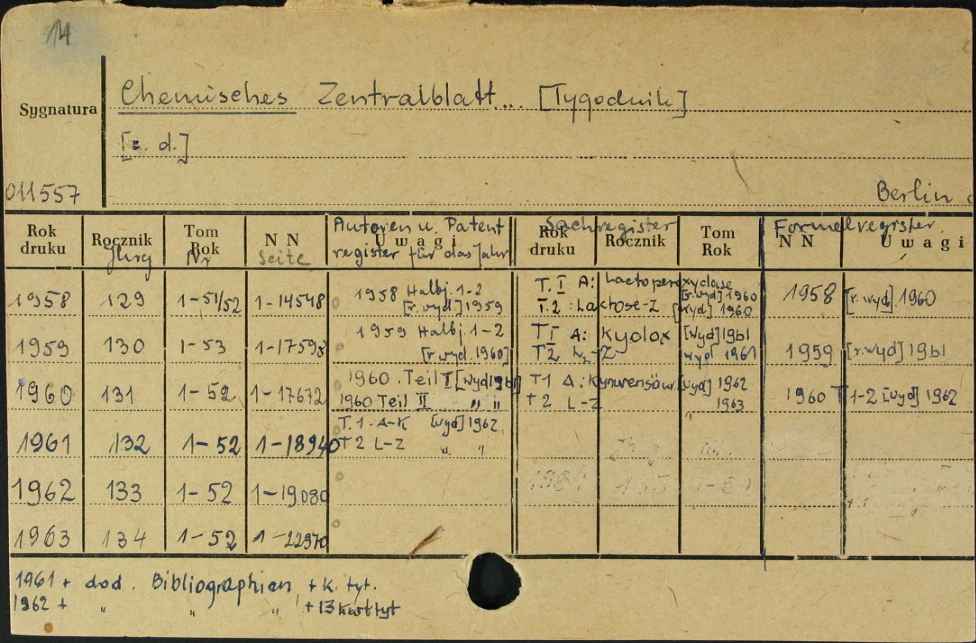 14
Sygnatura Chemisches Zentralblatt... [Tygodnik]
[z. d.]
011557 Berlin
Rok druku Rocznik Jhrg Tom Rok Nr N N Seite Autoren u. Patent register für das Jahr Uwagi Rok druku Sachregister Rocznik Tom Rok Formelregister N N Uwagi
1958 129 1-51/52 1-14548 1958 Halbj. 1-2 T. I A: Lactoperoxydase [r. wyd] 1960 1958 [r. wyd]. 1960
[r. wyd] 1959 T. 2 : Lactose-Z [wyd] 1960
1959 130 1-53 1-17598 1959 Halbj. 1-2 T I A: Kyolox [wyd] 1961 1959 [r. wyd] 1961
[r. wyd. 1960] T 2 -Z wyd 1961
1960 131 1-52 1-17672 1960. Teil I [wyd 1961] T1 A: [wyd] 1962 1960 T 1-2 [wyd] 1962
1960 Teil II " " T 2 L-Z 1963
1961 132 1-52 1-18940 T. 1. A-K [wyd] 1962
T 2 L-Z " "
1962 133 1-52 1-19080
1963 134 1-52 1-22970
1961 + dod. Bibliographien + K. tyt.
1962 + " " " + 13 kart tyt